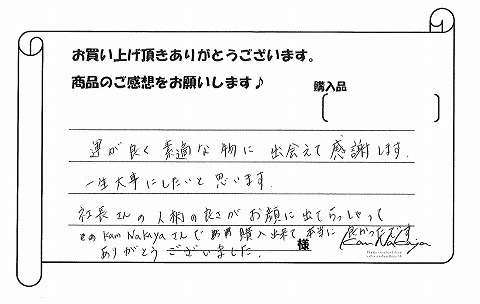 お買い上げ頂きありがとうございます。
商品のご感想をお願いします♪
購入品
運が良く素適な物に出会えて感謝します.
一生大事にしたいと思います.
社長さんの人柄の良さがお顔に出てらっしゃって
そのKam Nakayaさんで 購入出来て本当に良かったです
ありがとうございました.
様
Kan Nakaya